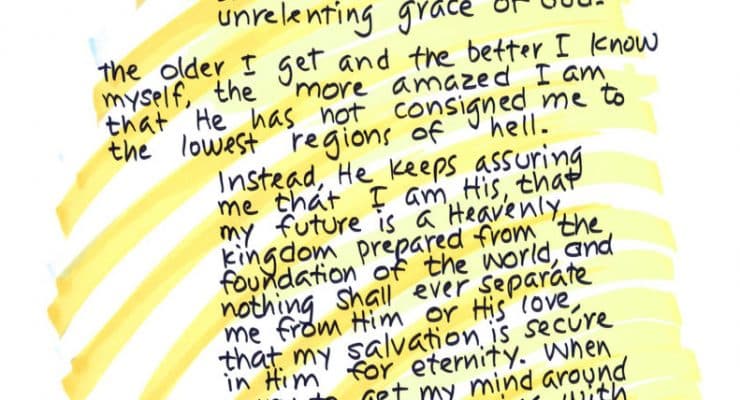 unrelenting grace of God.
the older I get and the better I know
myself, the more amazed I am
that He has not consigned me to
the lowest regions of hell.
Instead, He keeps assuring
me that I am His, that
my future is a Heavenly
kingdom prepared from the
foundation of the world, and
nothing shall ever separate
me from Him or His love,
that my salvation is secure
in Him for eternity. When
get my mind around
with